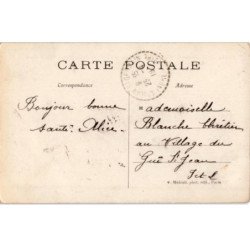 CARTE POSTALE
Correspondance
Adresse
Bonjour bonne
santé Alice
Mademoiselle
Blanche Chrétien
au Village du
Gué St Jean